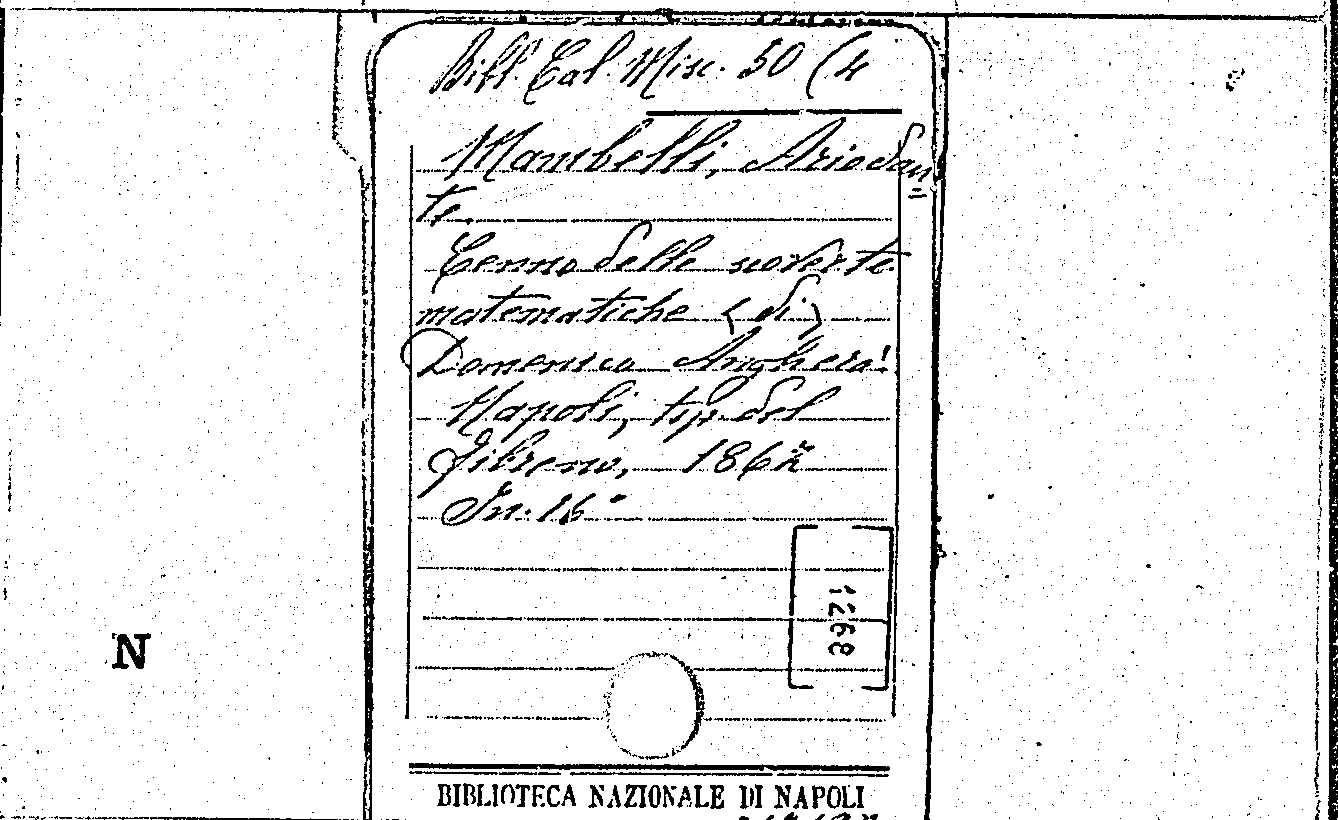 Bibl. Cal. Misc. 50 (4
Mambelli, Ariodan
te.
Cenno delle scoverte
matematiche < di >
Domenico Angherà.
Napoli, tip. del
Fibreno, 1862
In. 16°
1268
N
BIBLIOTECA NAZIONALE DI NAPOLI